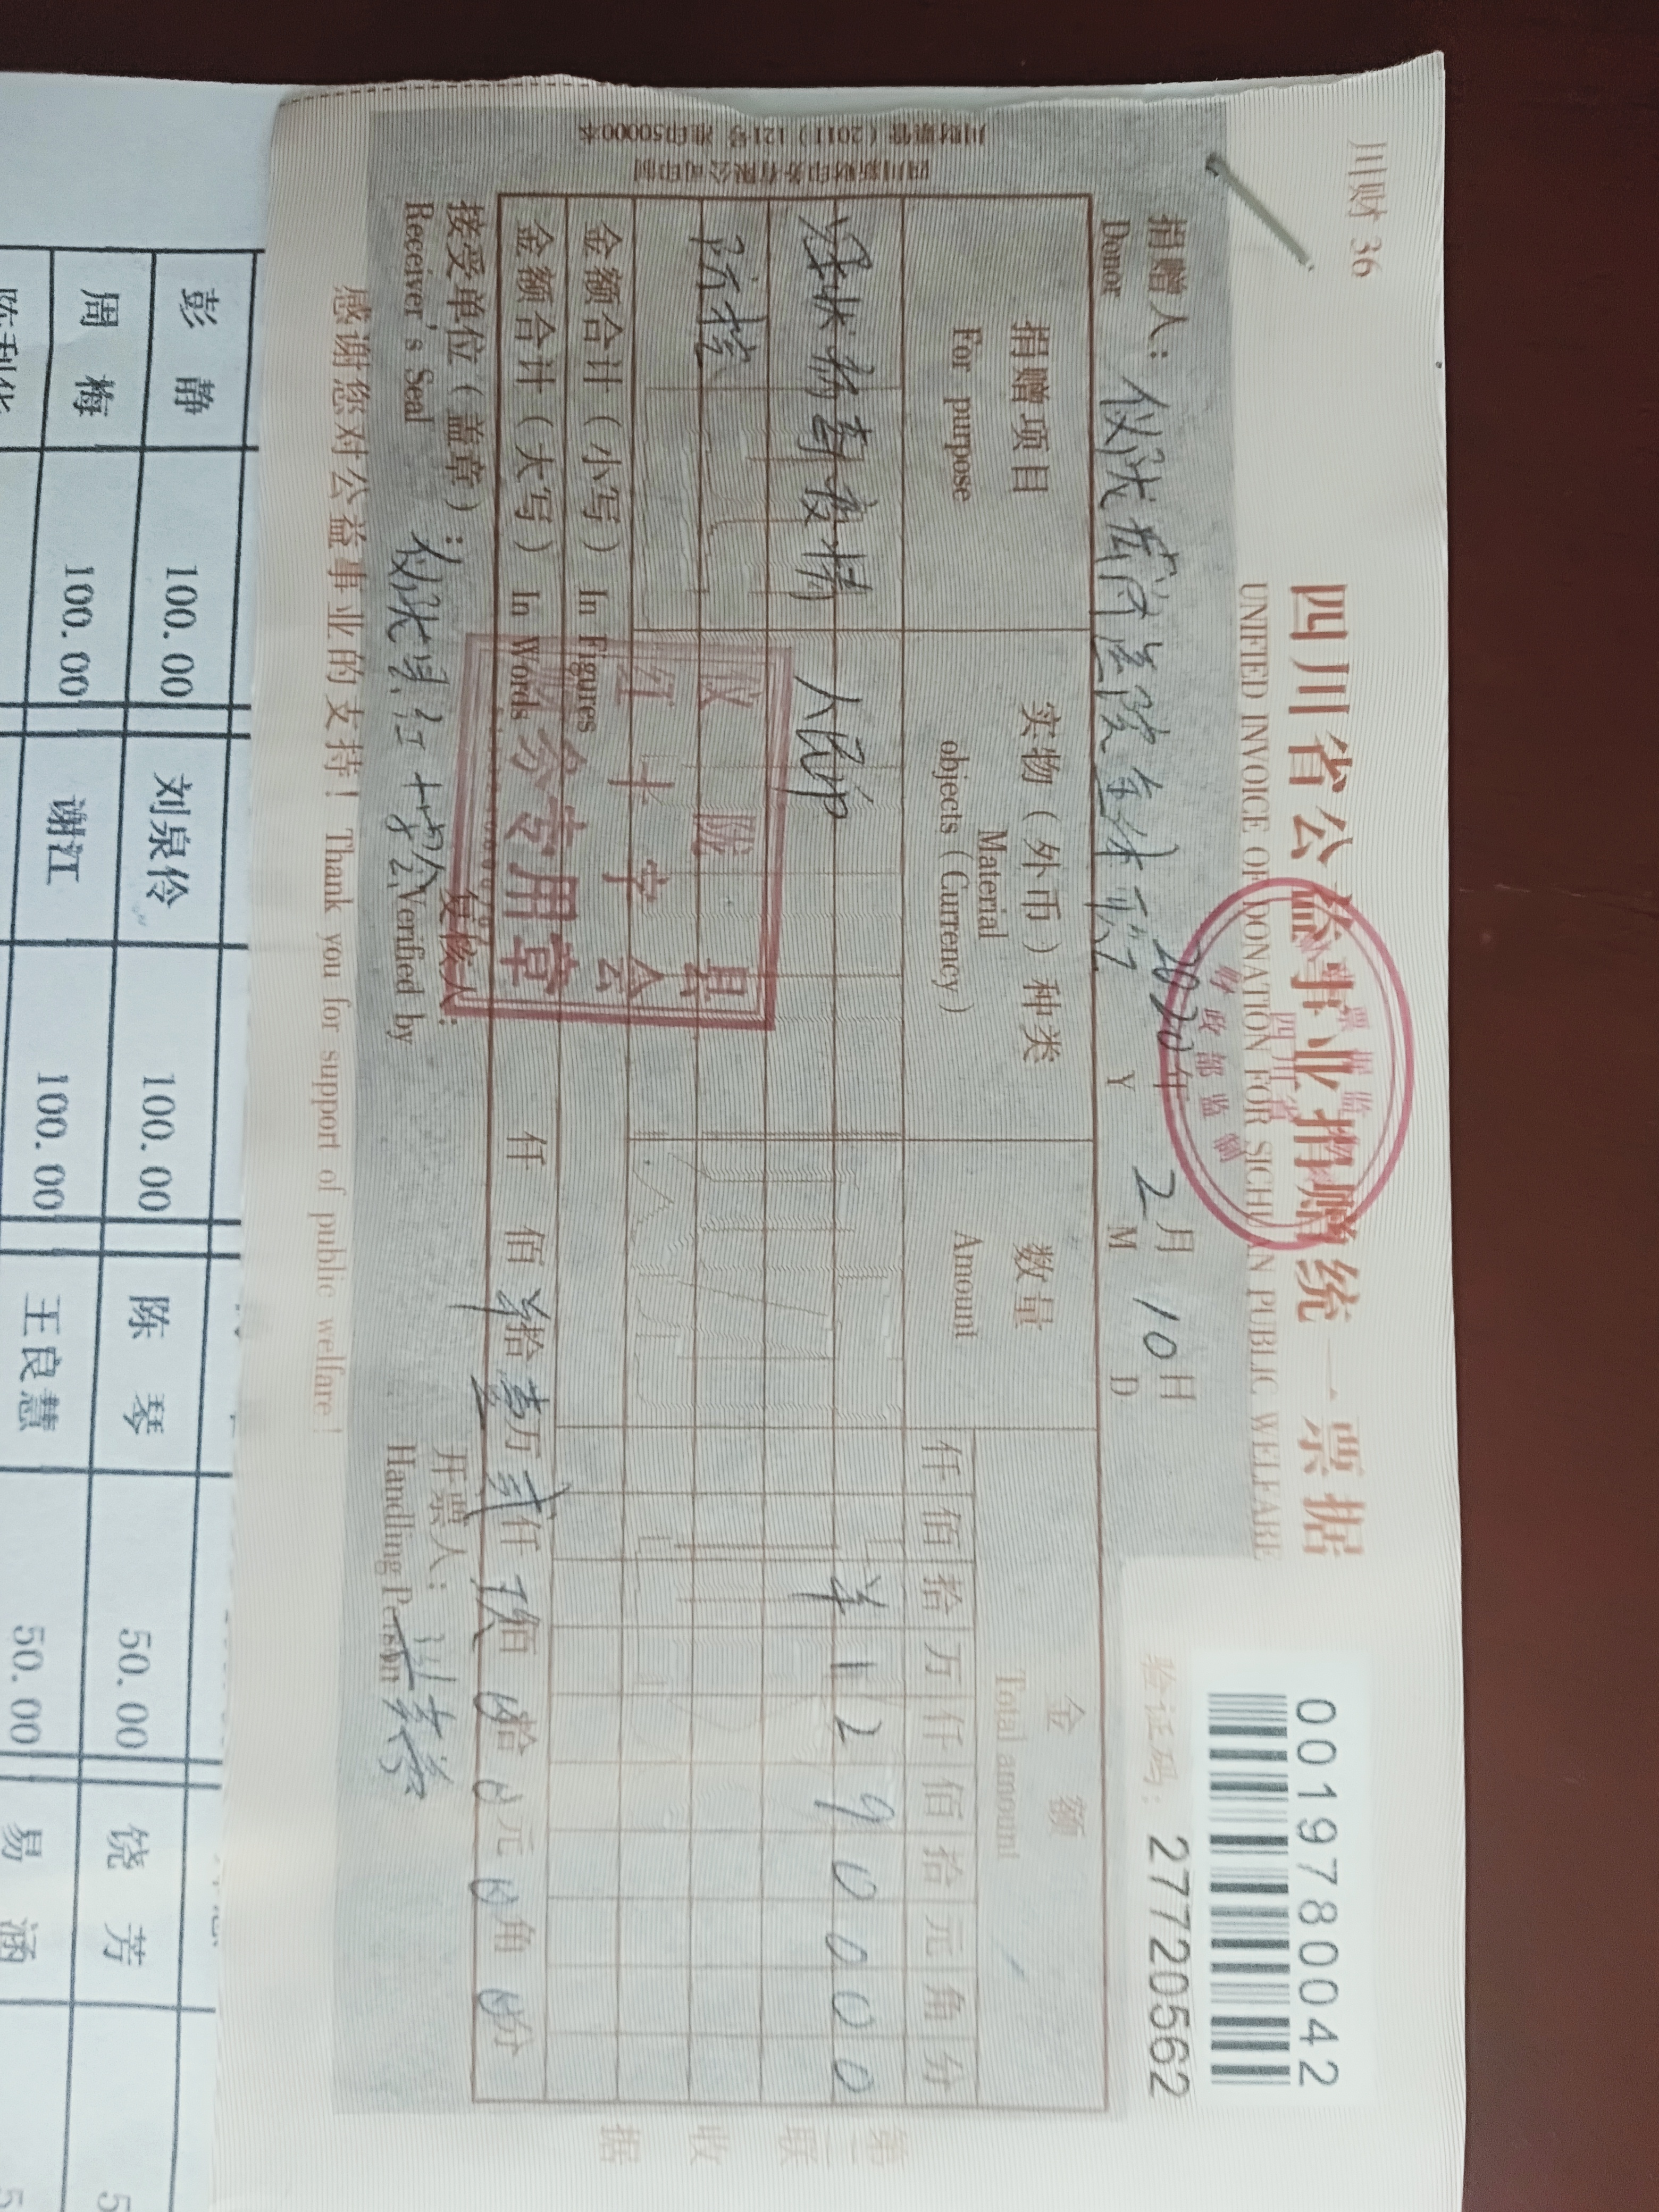 川财 36
四川省公益事业捐赠统一票据
UNIFIED INVOICE OF DONATION FOR SICHUAN PUBLIC WELFARE
票据监
四川省
财政部监制
0019780042
验证码：27720562
捐赠人：仪陇
Donor
2020年 2月 10日
Y M D
捐赠项目
For purpose
实物（外币）种类
Material
objects (Currency)
数量
Amount
金额
Total amount
仟 佰 拾 万 仟 佰 拾 元 角 分
疫情 人民币 ¥ 1 2 9 0 0 0 0
防控
金额合计（小写）In Figures
金额合计（大写）In Words 仟 佰 拾 壹万 贰仟 玖佰 0拾 0元 0角 0分
仪陇县
红十字会
财务专用章
接受单位（盖章）：仪陇县红十字会
Receiver's Seal
复核人：
Verified by
开票人：
Handling Person
感谢您对公益事业的支持！ Thank you for support of public welfare!
第二联 收据
四川新财印务有限公司印制
川财票管（2011）121号 准印50000本
彭 静 100.00 刘泉伶 100.00 陈 琴 50.00 饶 芳
周 梅 100.00 谢江 100.00 王良慧 50.00 易 涵
陈利华